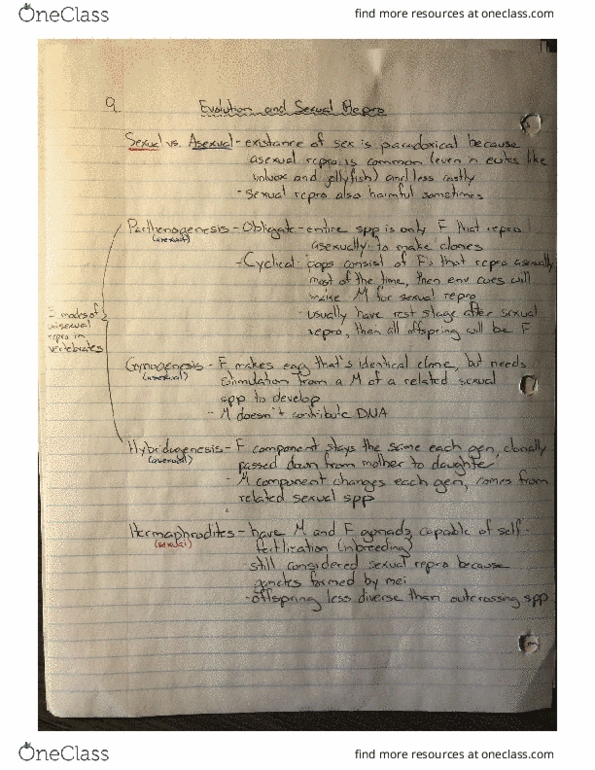 OneClass
find more resources at oneclass.com
9
Evolution and Sexual Repro
Sexual vs. Asexual - existance of sex is paradoxical because
asexual repro is common (even in eukes like
volvox and jellyfish) and less costly
- sexual repro also harmful sometimes
Parthenogenesis - Obligate - entire spp is only F that repro
(asexual)
asexually to make clones
- Cyclical - pops consist of F's that repro asexually
most of the time, then env cues will
make M for sexual repro
- usually have rest stage after sexual
repro, then all offspring will be F
3 modes of
unisexual
repro in
vertebrates
Gynogenesis - F makes egg that's identical clone, but needs
(asexual)
stimulation from a M of a related sexual
spp to develop
- M doesn't contribute DNA
Hybridogenesis - F component stays the same each gen, clonally
(asexual)
passed down from mother to daughter
- M component changes each gen, comes from
related sexual spp
Hermaphrodites - have M and F gonads capable of self-
(sexual)
fertilization (inbreeding)
- still considered sexual repro because
gametes formed by mei
- offspring less diverse than outcrossing spp
OneClass
find more resources at oneclass.com